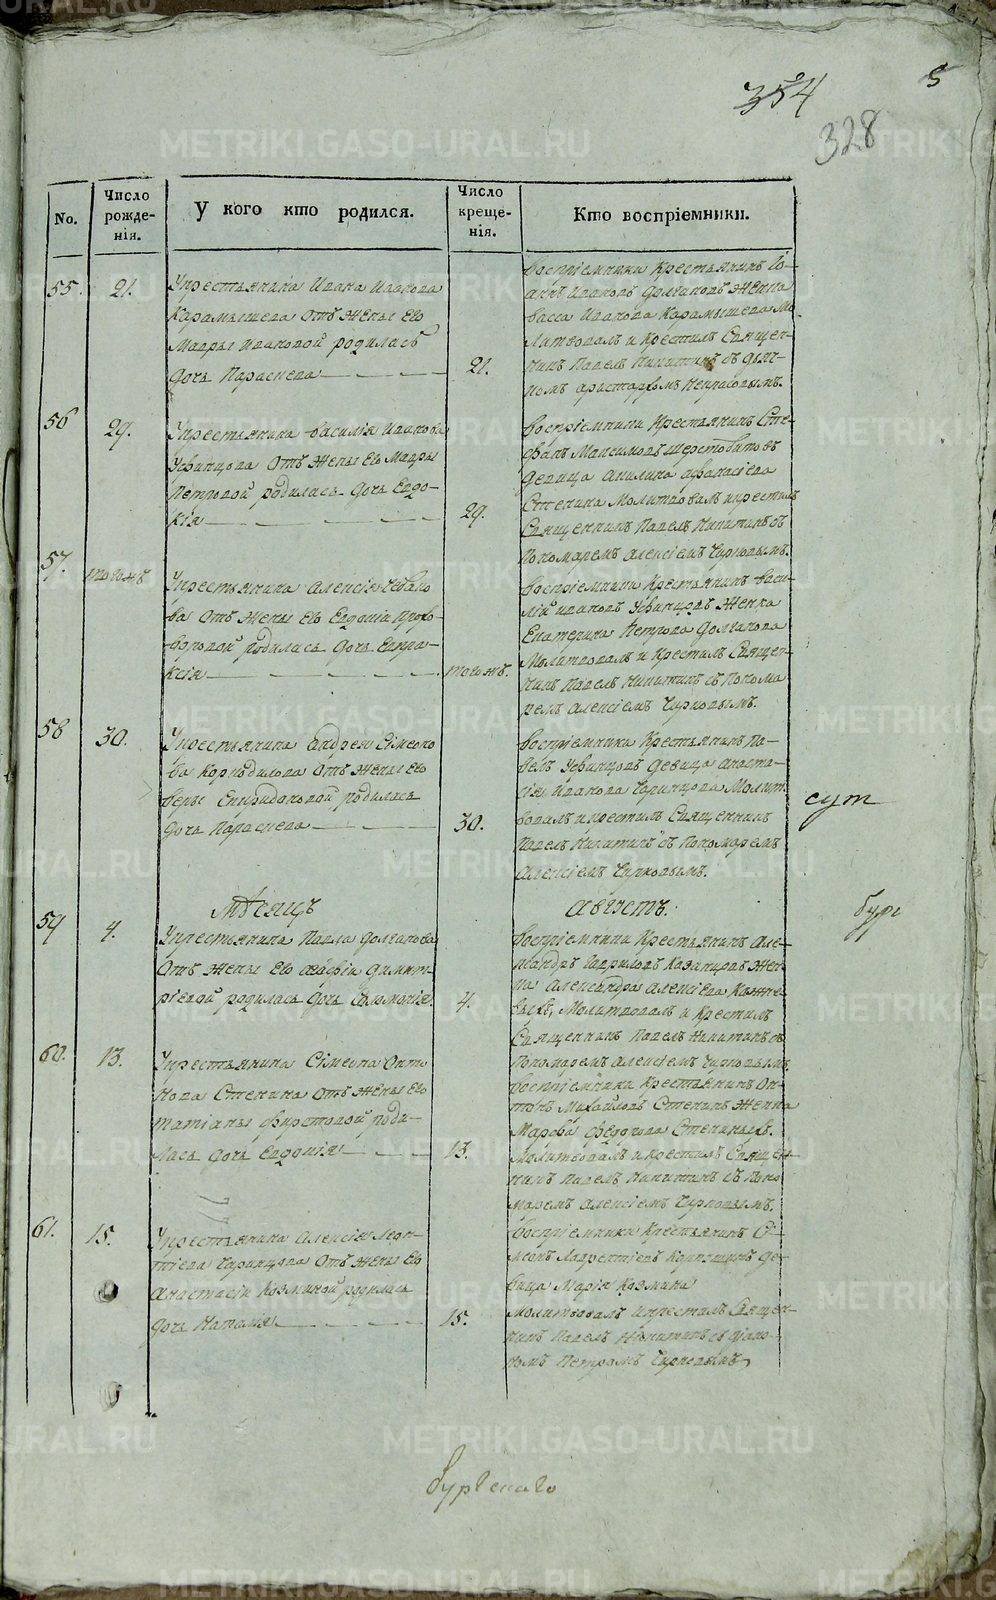 354
5
328
No.
Число рожде-нія.
У кого кто родился.
Число креще-нія.
Кто воспріемники.
55.
21.
У крестьянина Ивана Иванова
Карамышева отъ жены его
Мавры Ивановой родилась
дочь Параскева
21.
Воспріемники крестьянинъ Іо-
аннъ Ивановъ Долгановъ женка
Васса Иванова Карамышева Мо-
литвовалъ и крестилъ Священ-
никъ Павелъ Никитинъ съ дьяч-
комъ Аристархомъ Некрасовымъ.
56
29.
У крестьянина Василія Иванова
отъ жены его Мавры
Петровой родилась дочь Евдо-
кія
29.
Воспріемники крестьянинъ Сте-
фанъ Максимовъ Шерстобитовъ
девица Акилина Афанасіева
Стенина Молитвовалъ и крестилъ
Священникъ Павелъ Никитинъ съ
Пономаремъ Алексіемъ
57.
того жъ
У крестьянина Алексія
ва отъ жены его Евдокіи Прохо-
ровой родилась дочь Евпра-
ксія
того жъ.
Воспріемники крестьянинъ Васи-
лій Ивановъ женка
Екатерина Петрова Долганова
Молитвовалъ и крестилъ Священ-
никъ Павелъ Никитинъ съ Понома
ремъ Алексіемъ
58
30.
У крестьянина Андрея Сімеоно
ва отъ жены его
Веры Спиридоновой родилась
дочь Параскева
30.
Воспріемники крестьянинъ Па-
велъ девица Анаста-
сія Иванова Молит
вовалъ и крестилъ Священникъ
Павелъ Никитинъ съ Пономаремъ
Алексіемъ
сут
Мѣсяцъ
Августъ.
59
4.
У крестьянина Павла Долганова
отъ жены его Димит-
ріевой родилась дочь Соломонія
4.
Воспріемники крестьянинъ Але-
ксандръ Гавриловъ Казанцовъ жен
ка Александра Алексіева
Молитвовалъ и крестилъ
Священникъ Павелъ Никитинъ съ
Пономаремъ Алексіемъ
60.
13.
У крестьянина Сімеона Анто
нова Стенина отъ жены его
Татіаны родилась дочь Евдокія
13.
Воспріемники крестьянинъ Ан-
тонъ Михайловъ Стенинъ женка
Марфа Федорова Стениныхъ.
Молитвовалъ и крестилъ Священ-
никъ Павелъ Никитинъ съ Поно
маремъ Алексіемъ
61.
15.
У крестьянина Алексія Леон-
тіева отъ жены его
Анастасіи Козминой родилась
дочь Наталія
15.
Воспріемники крестьянинъ Сі-
меонъ Лаврентіевъ де-
вица Марія Козмина
Молитвовалъ и крестилъ Священ-
никъ Павелъ Никитинъ съ діако-
номъ Петромъ
METRIKI.GASO-URAL.RU